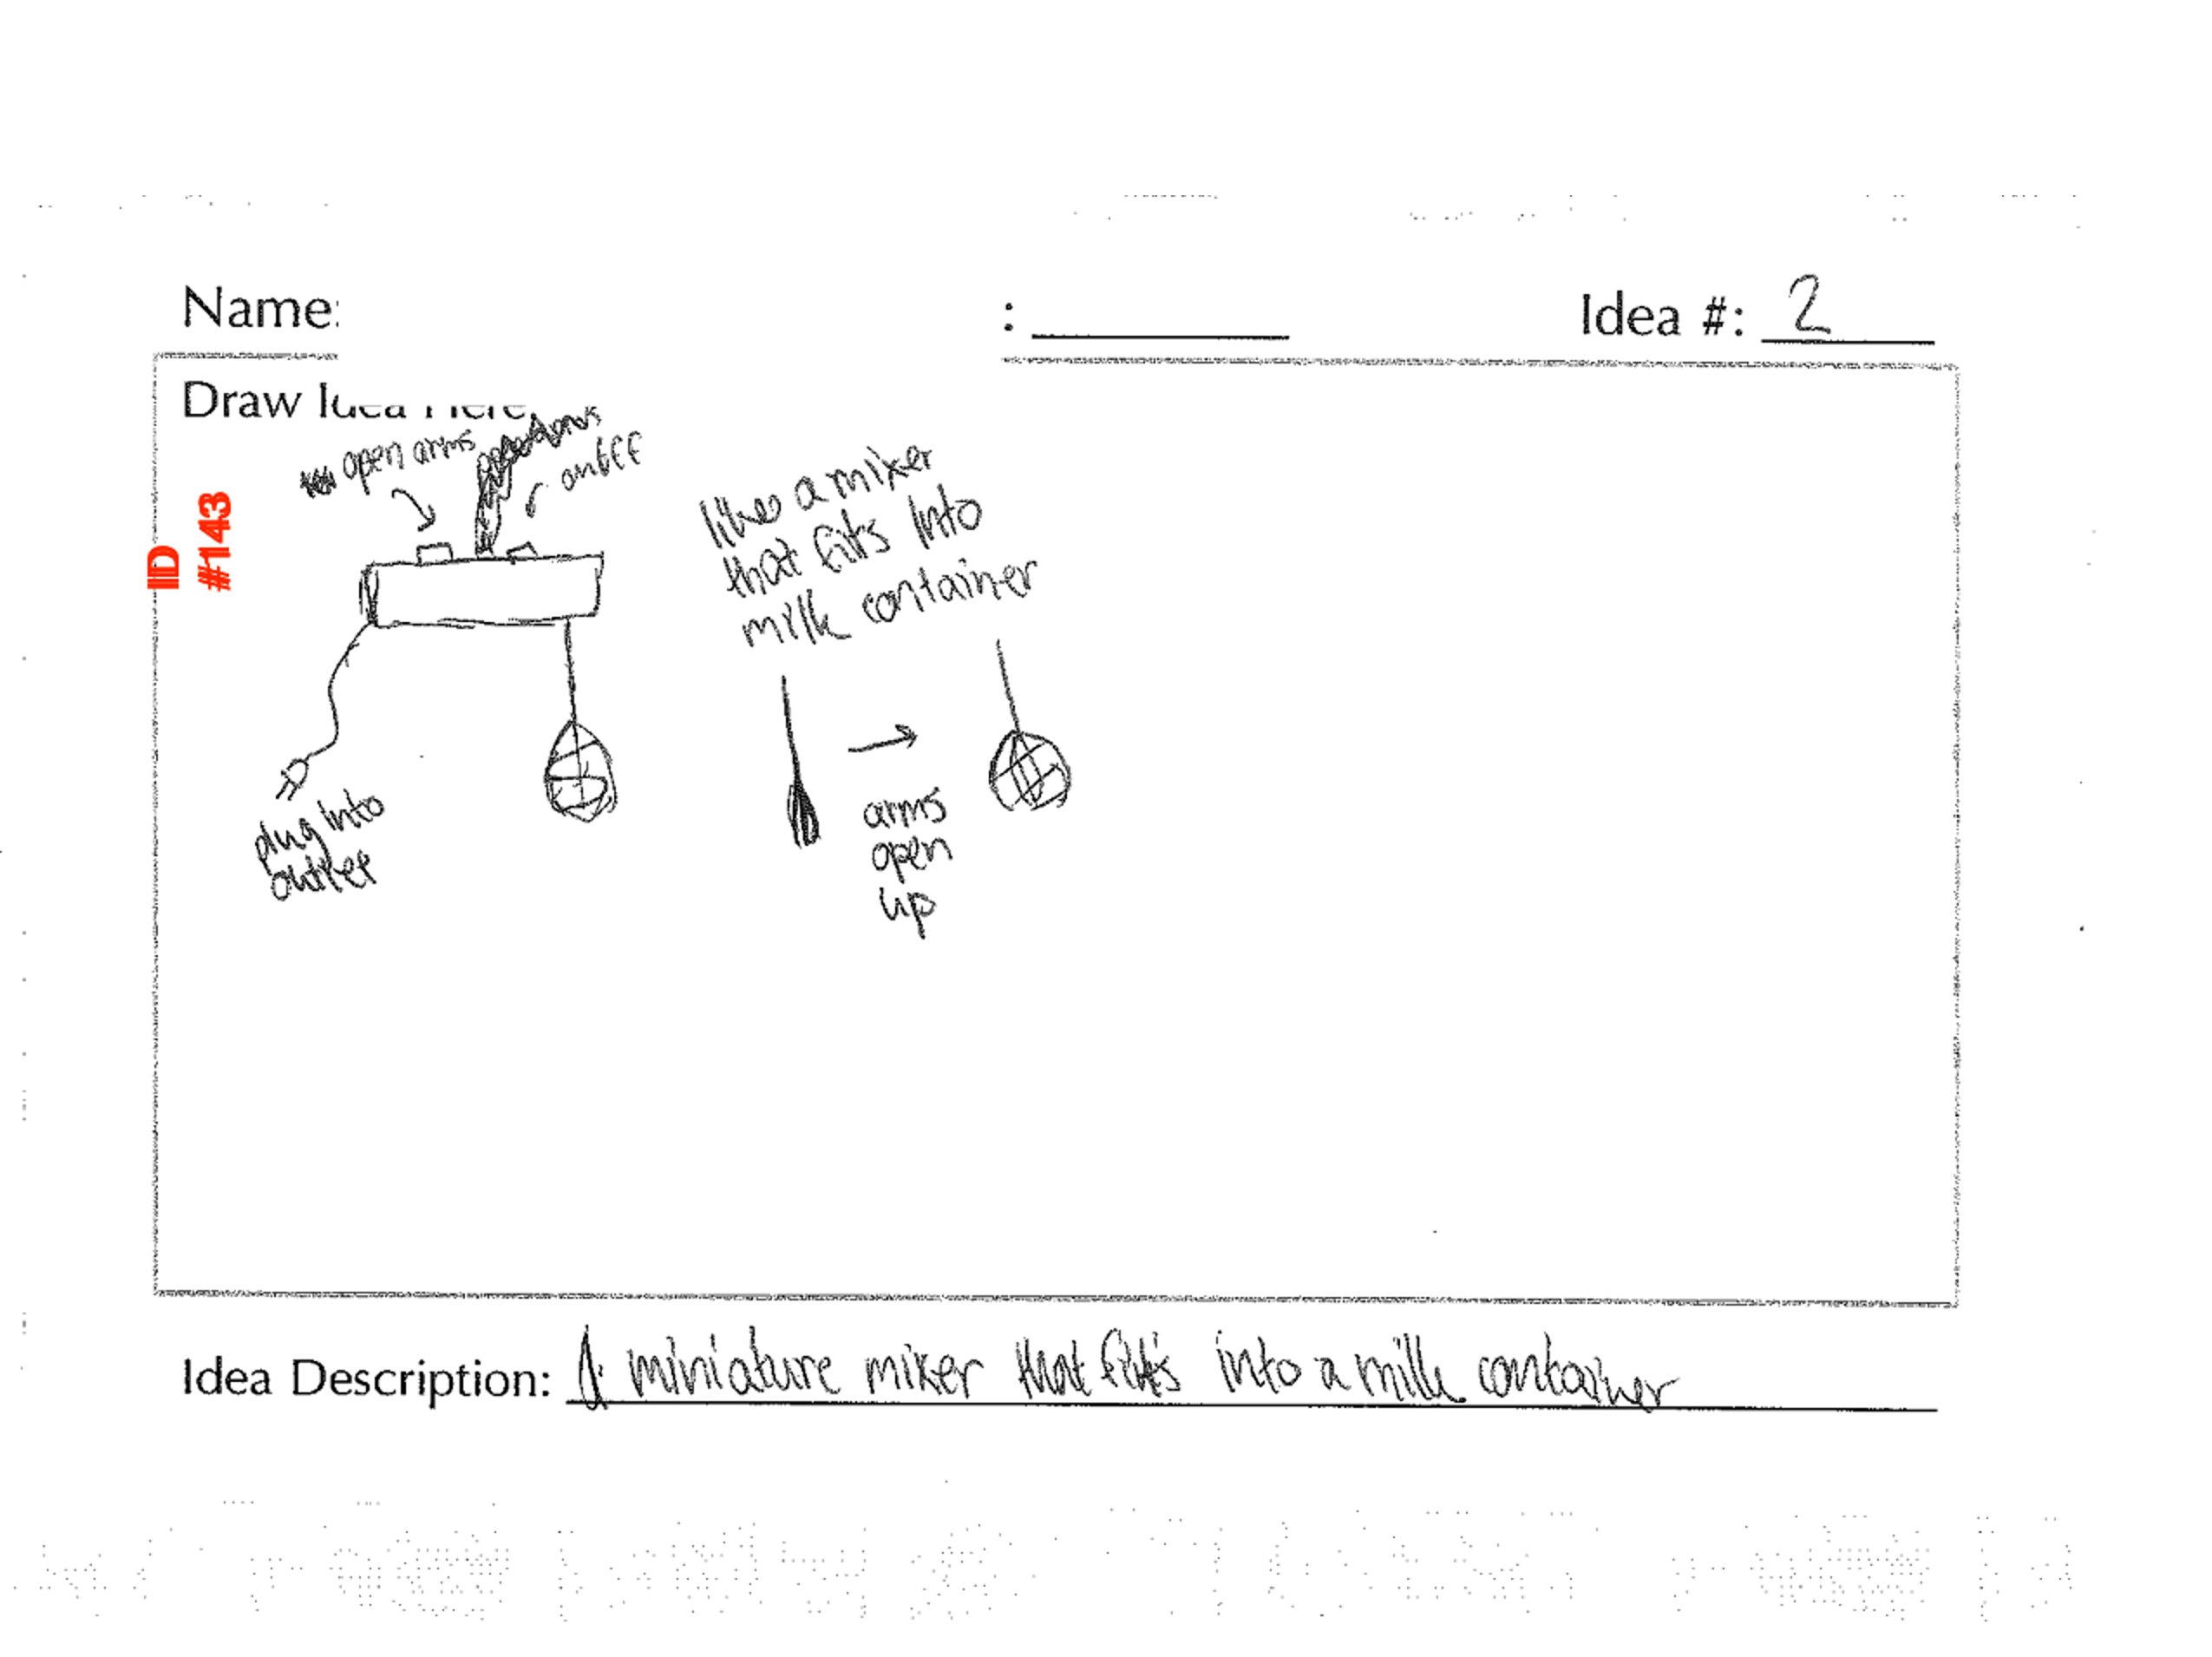 Name:
: 
Idea #: 2
Draw Idea Here
open arms
on/off
ID
#143
likes a mixer
that fits into
milk container
plug into
outlet
arms
open
up
Idea Description: A miniature mixer that fits into a milk container